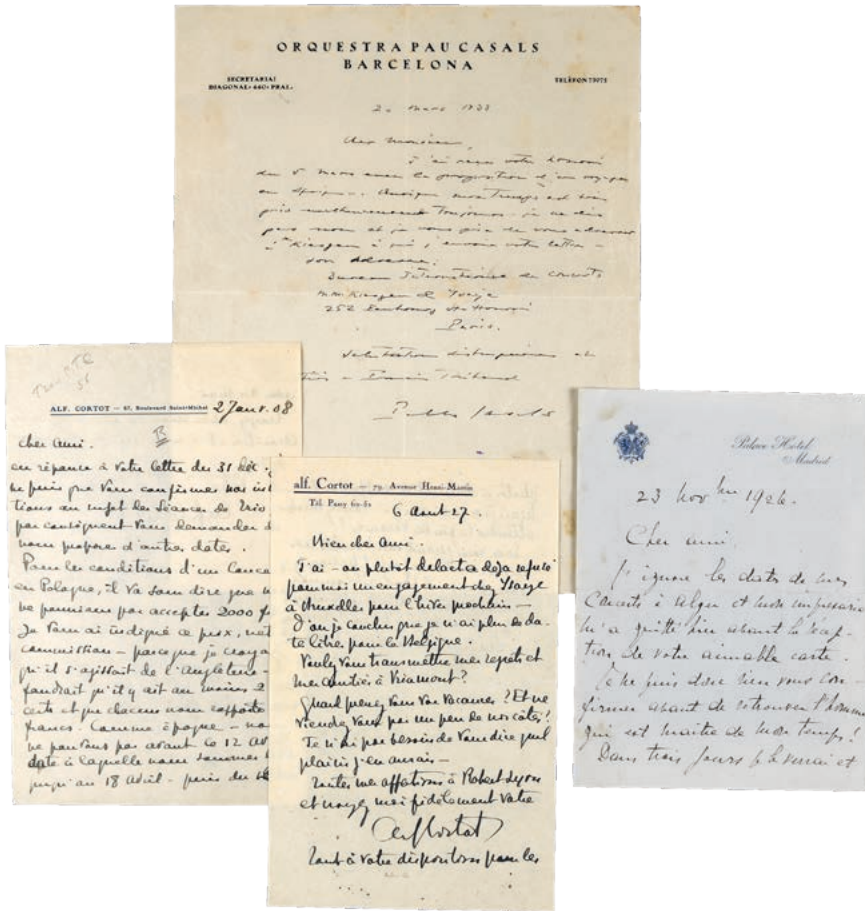 ORQUESTRA PAU CASALS
BARCELONA
SECRETARIA:
DIAGONAL, 440, PRAL.
TELÈFON 73075
20 Mars 1933
Cher Monsieur,
J'ai reçu votre
du 5 Mars avec la proposition d'un voyage
en Quoique mon temps est très
pris malheureusement toujours je ne dis
pas non et je vous prie de vous adresser
à Mr Kiesgen à qui j'envoie votre lettre –
son adresse:
Bureau International de Concerts
MM. Kiesgen & Ysaye
252 Faubourg St Honoré
Paris.
Salutations distinguées et
Thibaud
Pablo Casals
ALF. CORTOT — 67, Boulevard Saint-Michel 2 Janv. 08
cher Ami.
en réponse à votre lettre du 31 Déc.
ne puis que vous confirmer nos
tions au sujet des séances de Trio
par conséquent vous demander
nous propose d'autres dates.
Pour les conditions d'un
en Pologne, il va sans dire que
ne pourrions pas accepter 2000
Je vous ai indiqué ce prix, net
commission – parce que je croyais
qu'il s'agissait de l'Angleterre
faudrait qu'il y ait au moins 2
certs et que chacun nous rapporte
francs. Comme époque –
ne pouvons pas avant le 12
date à laquelle nous sommes
jusqu'au 18 Avril – puis du
alf. Cortot — 79, Avenue Henri-Martin
Tél. Passy 60-82
6 Aout 27
Mon cher Ami.
J'ai – ou plutôt a déjà refusé
pour moi un engagement chez Ysaye
à Bruxelles pour l'hiver prochain –
D'où je conclus que je n'ai plus de da-
te libre pour la Belgique.
Voulez vous transmettre mes regrets et
mes amitiés à
Quand prenez vous vos vacances? Et ne
viendrez vous pas un peu de nos côtés?
Je n'ai pas besoin de vous dire quel
plaisir j'en aurais –
Toutes mes affections à Robert Lyon
et croyez moi fidèlement votre
Alf Cortot
Tout à votre disposition pour les
Palace Hôtel
Madrid
23 Novbre 1926.
Cher ami,
J'ignore les dates de mes
Concerts à Alger et mon imprésario
m'a quitté avant la récep-
tion de votre aimable carte.
Je ne puis donc rien vous con-
firmer avant de retrouver l'homme
qui est maître de mon temps!
Dans trois jours je le verrai et